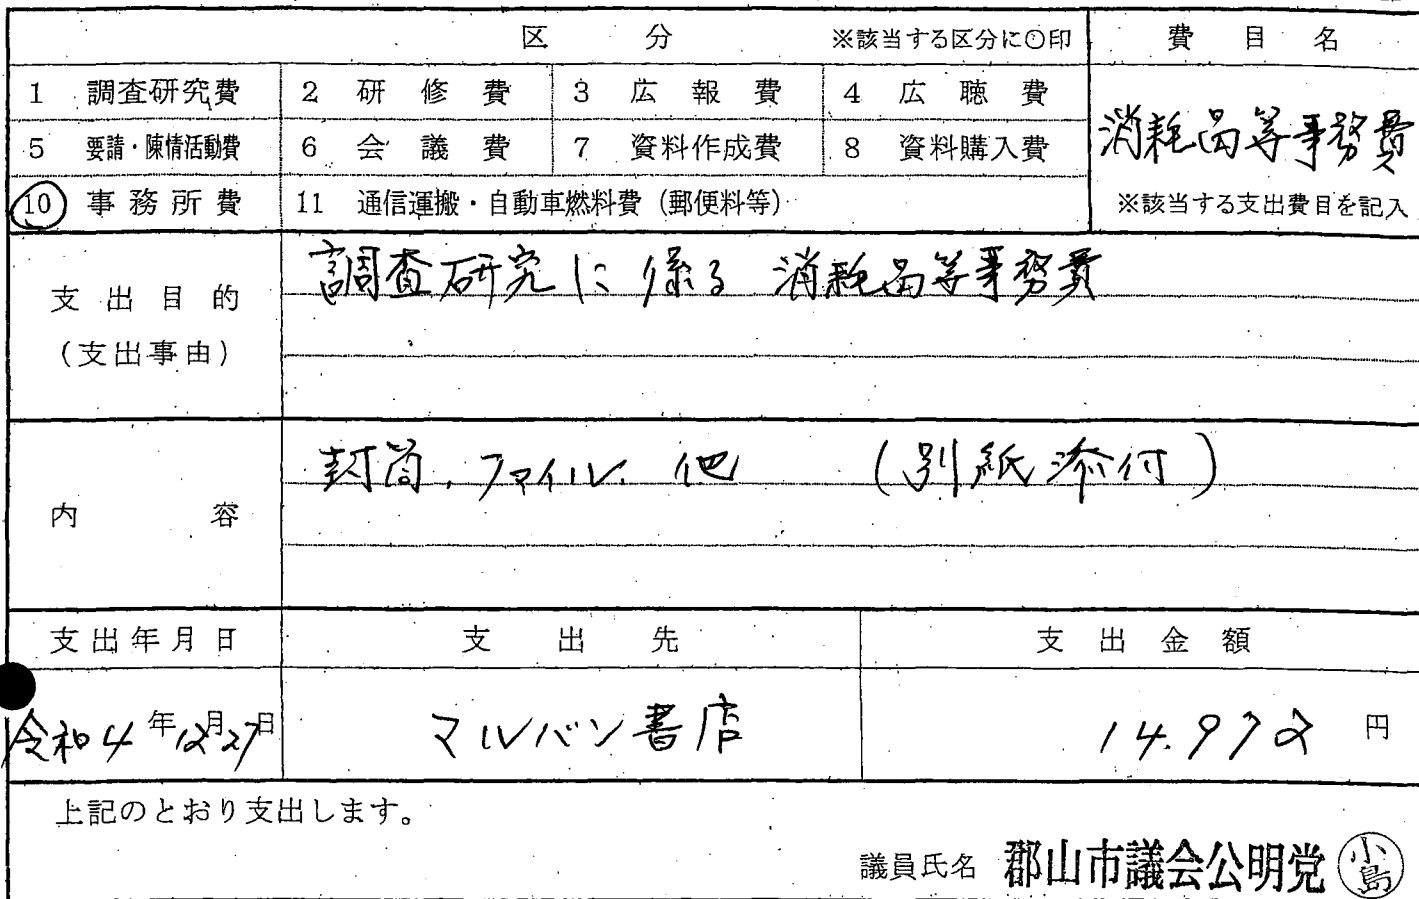 区 分 ※該当する区分に○印 費目名
1 調査研究費 2 研修費 3 広報費 4 広聴費
消耗品等事務費
5 要請・陳情活動費 6 会議費 7 資料作成費 8 資料購入費
10 事務所費 11 通信運搬・自動車燃料費（郵便料等） ※該当する支出費目を記入
調査研究に係る消耗品等事務費
支出目的
（支出事由）
封筒、ファイル、他 （別紙添付）
内容
支出年月日 支出先 支出金額
令和4年12月27日 マルバン書店 14,972円
上記のとおり支出します。
議員氏名 郡山市議会公明党 小島